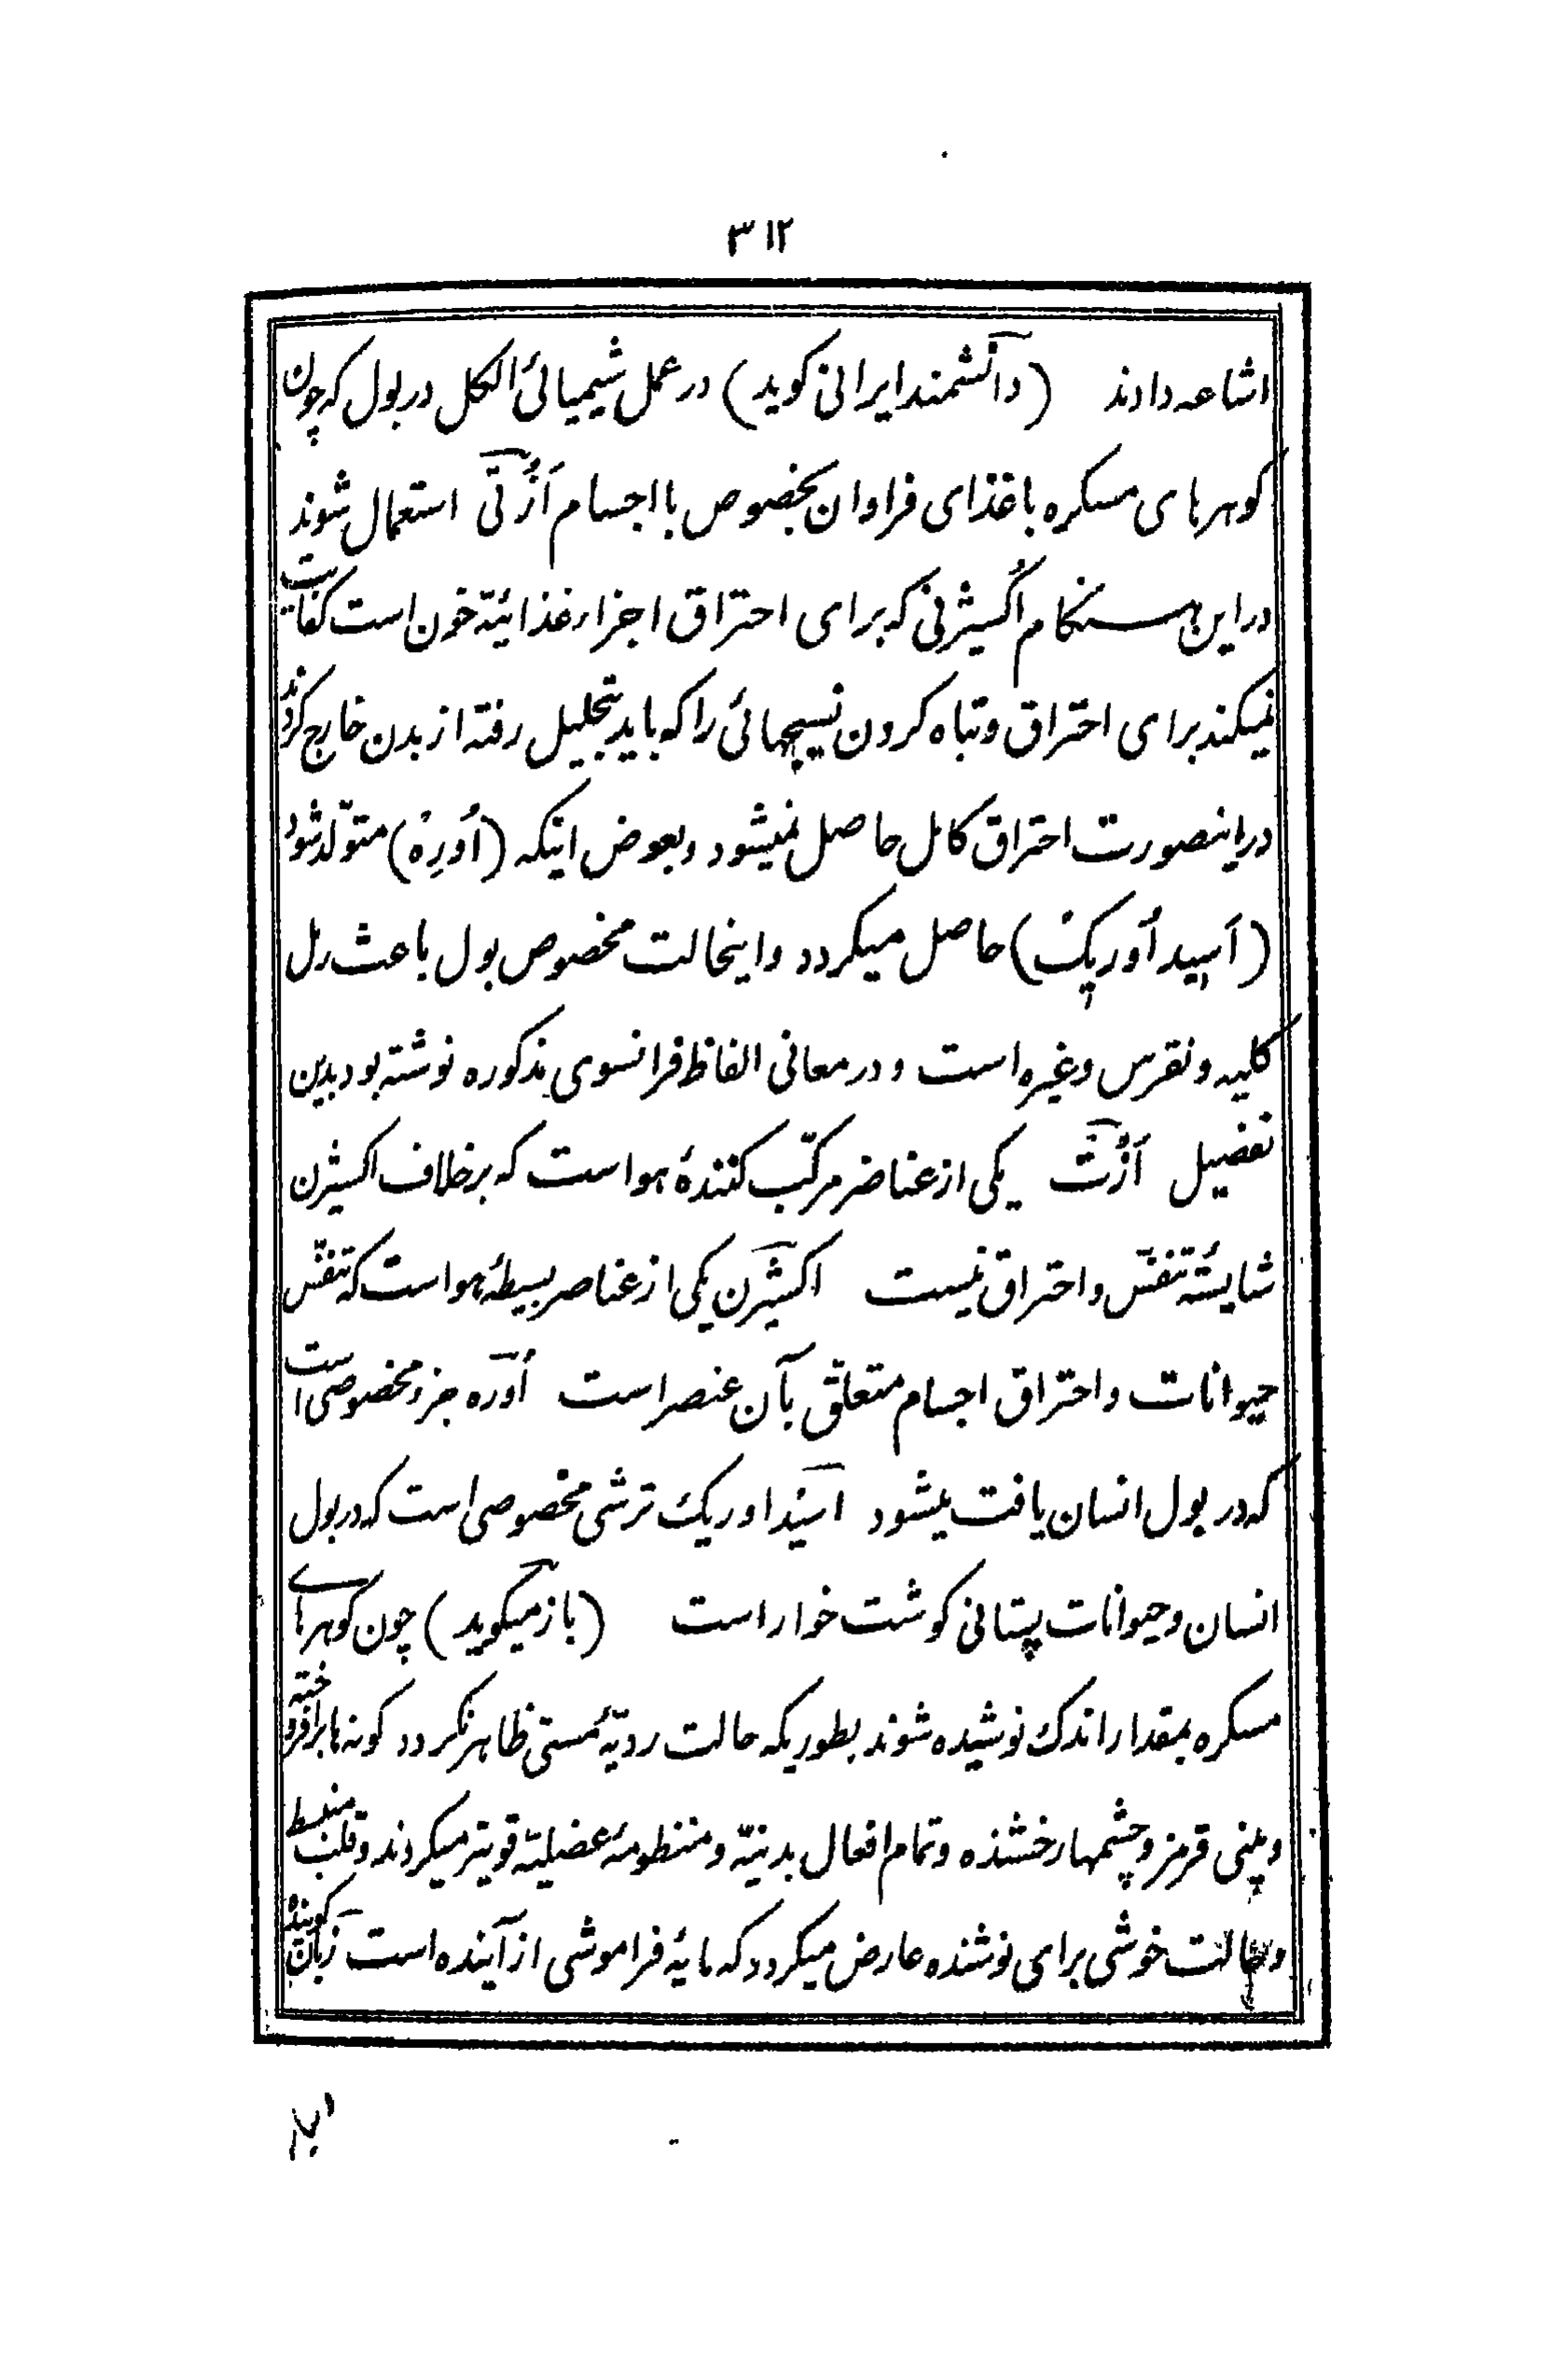 ۳۱۲
اشاعه دادند (دانشمند ایرانی کوید) در عمل شیمیائی الکل در بول که چون
کوهرهای مسکره باغذای فراوان بخصوص با اجسام اَزُتی استعمال شوند
در این هنکام اُکسیژنی که برای احتراق اجزاء غذائیّه خون است کفایت
نمیکند برای احتراق و تباه کردن نسیجهائی را که باید بتحلیل رفته از بدن خارج کردند
دراینصورت احتراق کامل حاصل نمیشود و بعوض اینکه (اُورِهْ) متوّلد شود
(اَسید اُوریکْ) حاصل میکردد و اینحالت مخصوص بول باعث رمل
کلیه و نقرس و غیره است و در معانی الفاظ فرانسوی مذکوره نوشته بود بدین
تفضیل اَزُتْ یکی از عناصر مرکّب کنندهٔ هوا است که برخلاف اکسیژن
شایستهٔ تنفّس و احتراق نیست اکسیژن یکی از عناصر بسیطهٔ هواست که تنفّس
حیوانات و احتراق اجسام متعلّق بآن عنصر است اُوره جزء مخصوصی است
که در بول انسان یافت میشود اسید اوریک ترشی مخصوصی است که در بول
انسان و حیوانات پستانی کوشت خوار است (باز میکوید) چون کوهرهای
مسکره بمقدار اندک نوشیده شوند بطوریکه حالت ردیّهٔ مستی ظاهر نکردد کونه ها برافروخته
و بینی قرمز و چشمها رخشنده و تمام افعال بدنیّه و منظومهٔ عضلیّه قویتر میکردند و قلب منبسط
و حالت خوشی برای نوشنده عارض میکردد که مایهٔ فراموشی از آینده است زبان کوینده